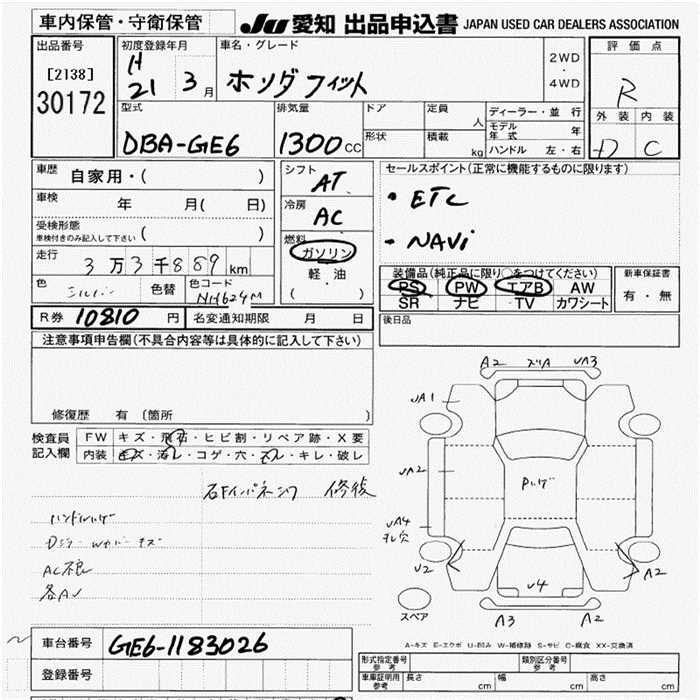 車内保管・守衛保管
JU 愛知 出品申込書 JAPAN USED CAR DEALERS ASSOCIATION
出品番号
[2138]
30172
初度登録年月
H
21 3月
車名・グレード
ホンダフィット
2WD
・
4WD
評価点
R
外装 内装
D C
型式
DBA-GE6
排気量
1300 CC
ドア
形状
定員 人
積載 kg
ディーラー・並行
モデル年式 年
ハンドル 左・右
車歴 自家用・( )
車検 年 月( 日)
受検形態
車検付きのみ記入して下さい ( )
走行 3万3千889km
色 シルバー 色替 色コード NH624M
シフト AT
冷房 AC
燃料
ガソリン
軽・油
( )
セールスポイント(正常に機能するものに限ります)
・ETC
・NAVi
装備品(純正品に限り○をつけてください)
PS PW エアB AW
SR ナビ TV カワシート
新車保証書
有・無
R券 10810 円 名変通知期限 月 日
後日品
注意事項申告欄(不具合内容等は具体的に記入して下さい)
修復歴 有 〔箇所 〕
検査員記入欄
FW キズ・飛石・ヒビ割・リペア跡・X要
内装 キズ・汚レ・コゲ・穴・スレ・キレ・破レ
右Fインパネンフ 修復
ハンドルハゲ
AC不良
A2 ズリA UA3
UA1
UA2
Pハゲ
UA4
スレ穴
U2
U4
A2
スペア
A3 A2
A-キズ E-エクボ U-凹み W-補修跡 S-サビ C-腐食 XX-交換済
車台番号 GE6-1183026
登録番号
形式指定番号 参考
類別区分番号 参考
車庫証明用 参考 長さ cm 幅 cm 高さ cm